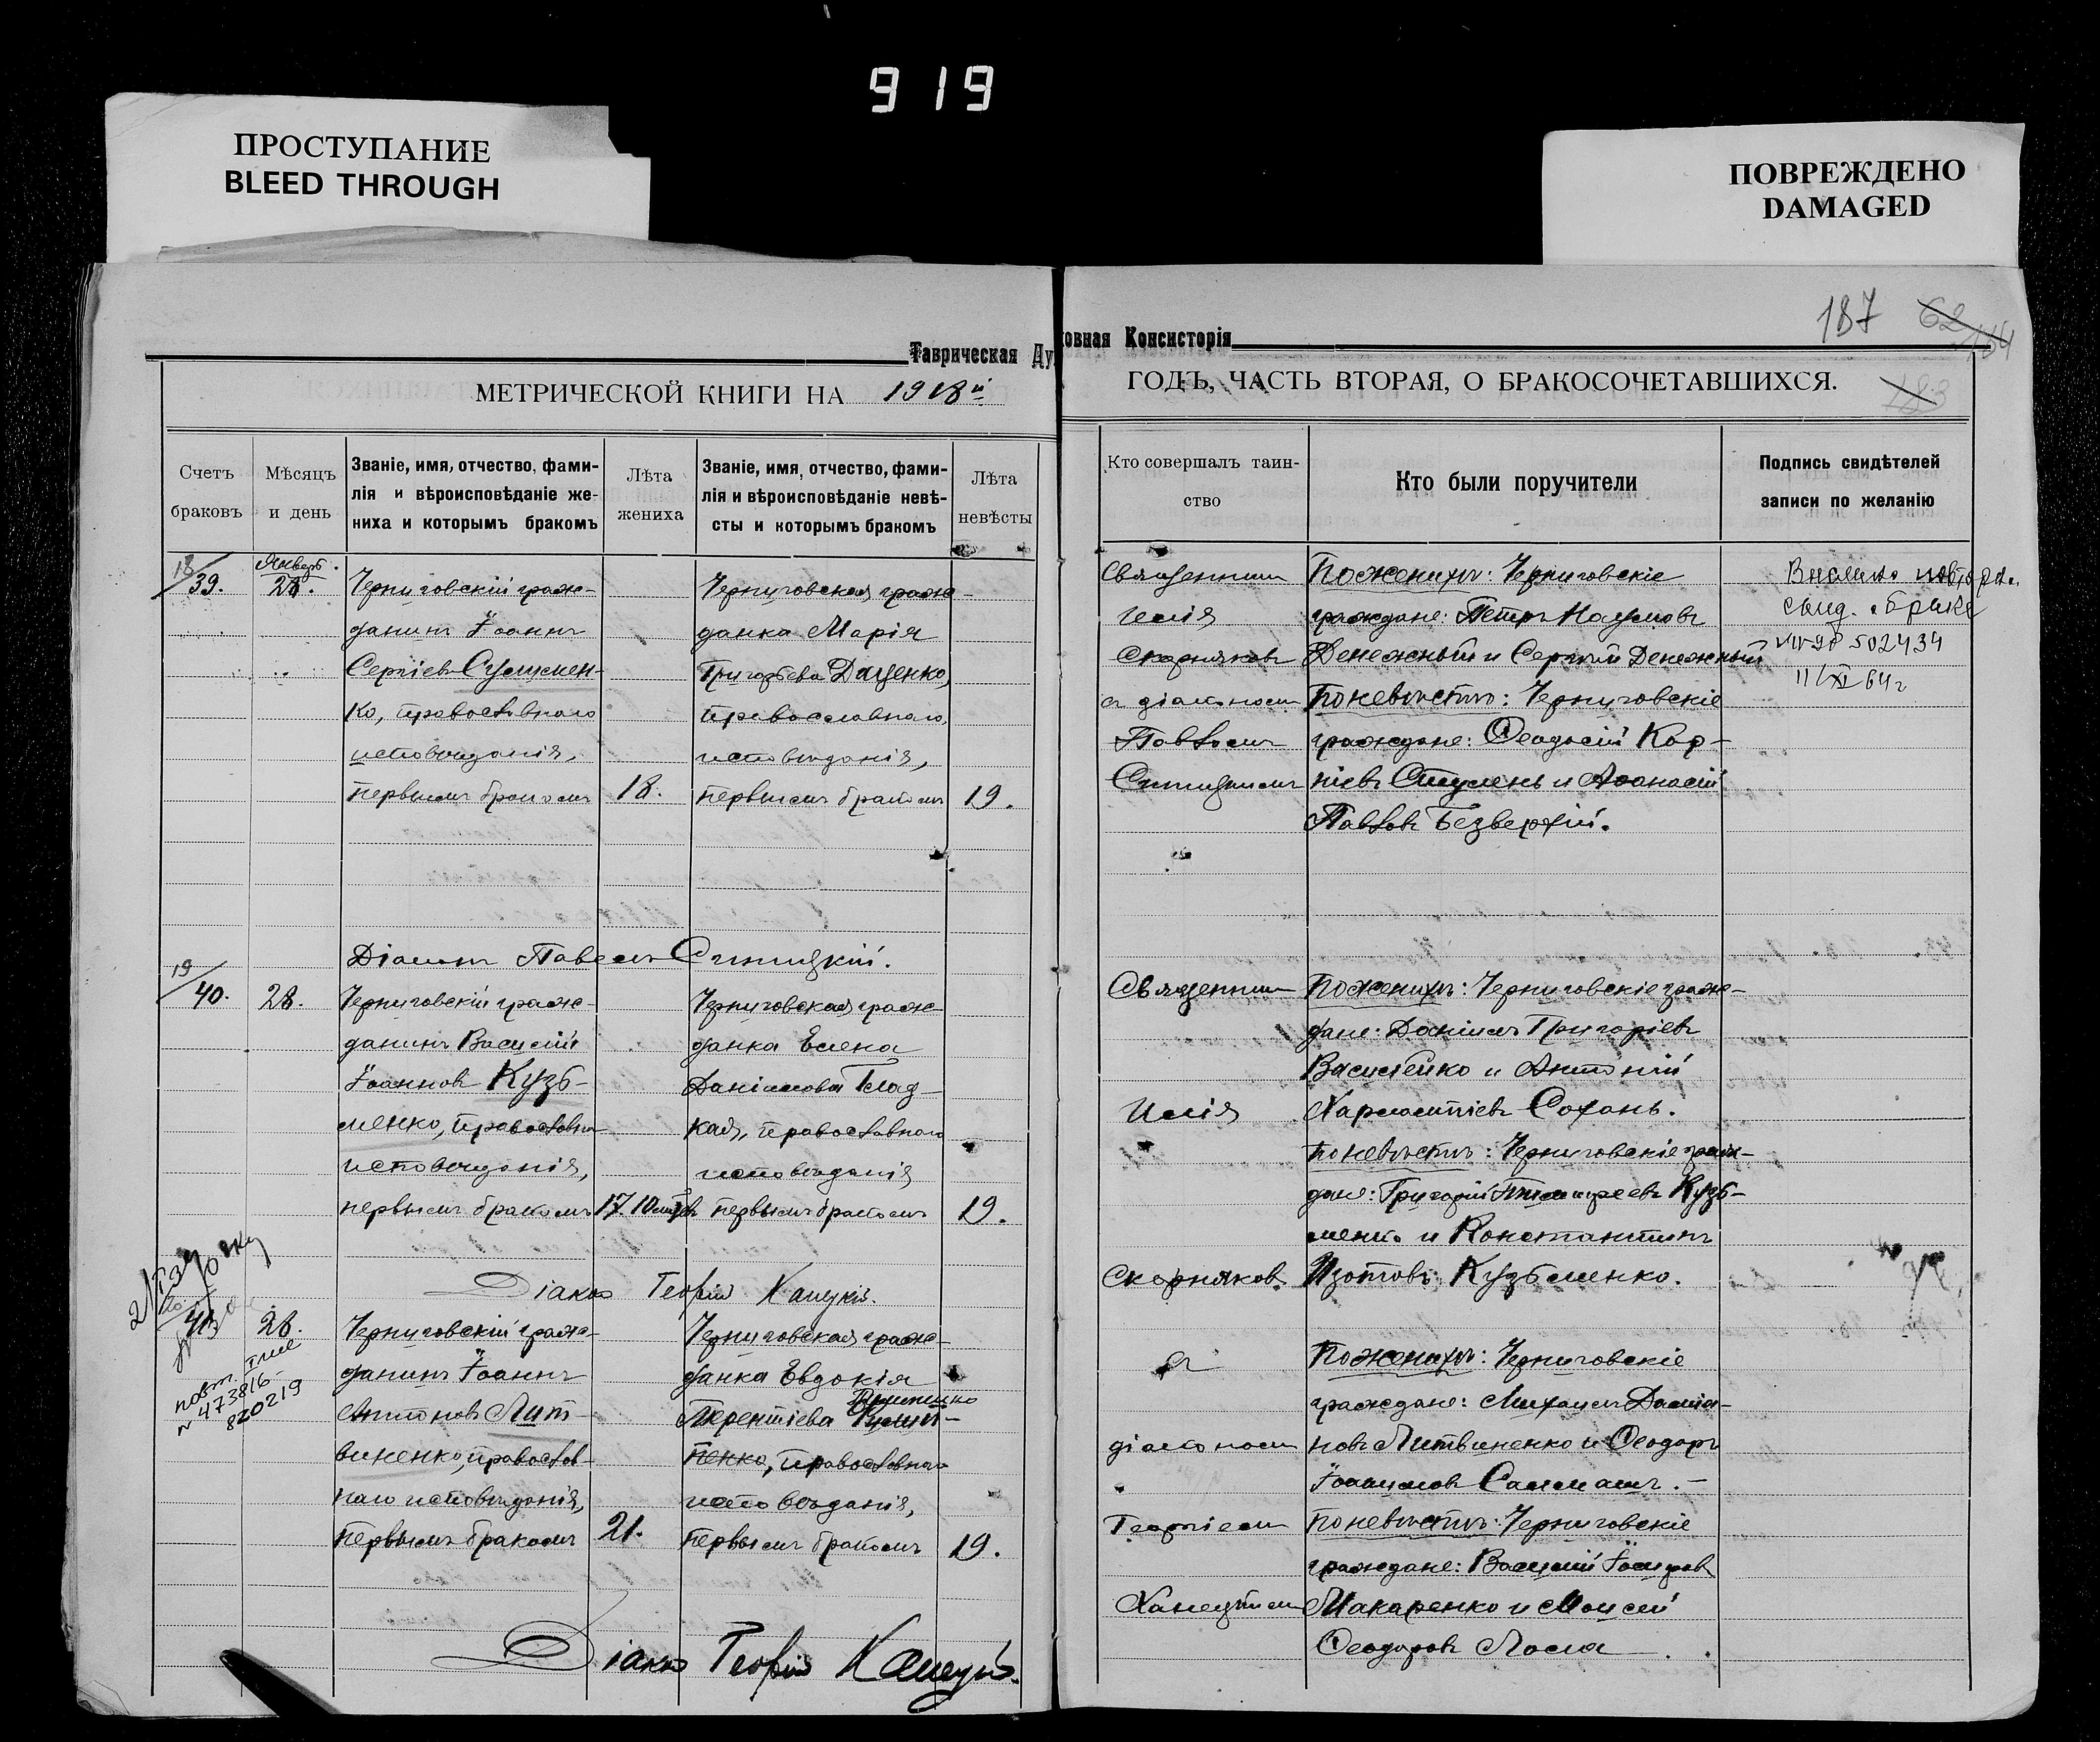 919
ПРОСТУПАНИЕ
BLEED THROUGH
ПОВРЕЖДЕНО
DAMAGED
187 62
164
183
Таврическая Ду
овная Консисторія
МЕТРИЧЕСКОЙ КНИГИ НА 1918й
ГОДЪ, ЧАСТЬ ВТОРАЯ, О БРАКОСОЧЕТАВШИХСЯ.
Счетъ
браковъ
Мѣсяцъ
и день
Званіе, имя, отчество, фами-
лія и вѣроисповѣданіе же-
ниха и которымъ бракомъ
Лѣта
жениха
Званіе, имя, отчество, фами-
лія и вѣроисповѣданіе невѣ-
сты и которымъ бракомъ
Лѣта
невѣсты
Кто совершалъ таин-
ство
Кто были поручители
Подпись свидѣтелей
записи по желанію
18/39.
Январь.
28.
Черниговскій граж-
данинъ Іоаннъ
Сергіевъ
ко, православнаго
исповѣданія,
первымъ бракомъ
18.
Черниговская граж-
данка Марія
Григорьева Даценко,
православнаго
исповѣданія,
первымъ бракомъ
19.
Священникъ
Илія
Скорняковъ
съ діакономъ
Павломъ
Синицкимъ
По женихѣ: Черниговскіе
граждане: Петръ Наумовъ
Денежный и Сергій Денежный
По невѣстѣ: Черниговскіе
граждане: Ѳеодосій Кор-
ніевъ Стулень и Аѳанасій
Павловъ Безверхій.
повтор.
свид. о браке
502434
11/XI 64г
Діаконъ Павелъ Синицкій.
19/40.
28.
Черниговскій граж-
данинъ Василій
Іоанновъ Кузь-
менко, православн.
исповѣданія,
первымъ бракомъ
17
Черниговская граж-
данка Елена
Даніилова Глад-
кая, православнаго
исповѣданія
первымъ бракомъ
19.
Священникъ
Илія
Скорняковъ
По женихѣ: Черниговскіе граж-
дане: Даніилъ Григоріевъ
Василейко и Антоній
Харлампіевъ Сохань.
По невѣстѣ: Черниговскіе граж-
дане: Григорій Кузь-
менко и Константинъ
Изотовъ Кузьменко.
Діаконъ Георгій Ханецкій.
41
28.
повт.
N 473816
820219
Черниговскій граж-
данинъ Іоаннъ
Антоновъ Лит-
виненко, православ-
наго исповѣданія,
первымъ бракомъ
21.
Черниговская граж-
данка Евдокія
Терентіева
пенко, православнаго
исповѣданія,
первымъ бракомъ
19.
съ
діакономъ
Георгіемъ
Ханецкимъ
По женихѣ: Черниговскіе
граждане: Михаилъ Даміа-
новъ Литвиненко и Ѳеодоръ
Іоакимовъ
По невѣстѣ: Черниговскіе
граждане: Василій
Макаренко и Моисей
Ѳеодоровъ
Діаконъ Георгій Ханецкій.